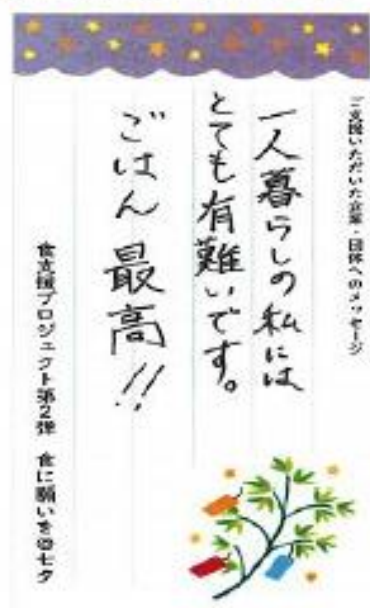 ご支援いただいた企業・団体へのメッセージ
一人暮らしの私には、
とても有難いです。
ごはん 最高!!
食支援プロジェクト第2弾 食に願いを@七夕